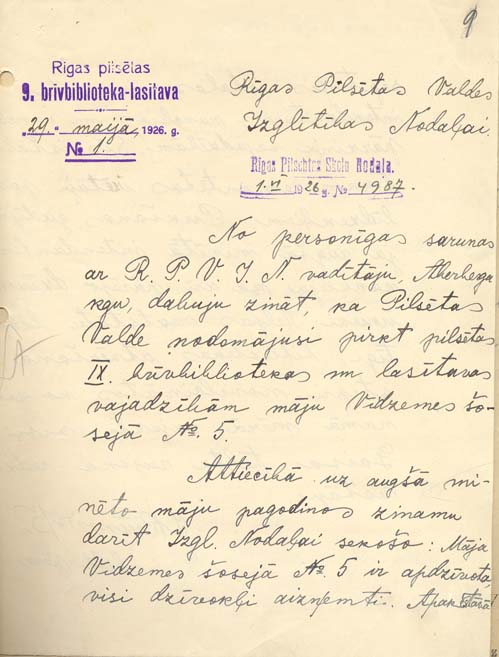 9
Rīgas pilsētas
9. brīvbibliotēka-lasītava
"29." maijā, 1926. g.
№ 1.
Rīgas Pilsētas Valdes
Izglītības Nodaļai.
Rigas Pilsehtas Skolu Nodaļa.
1. VI 1926 g. № 4987.
No personīgas sarunas
ar R. P. V. I. N. vadītāju, Aberberga
kgu, dabuju zināt, ka Pilsētas
Valde nodomājusi pirkt pilsētas
IX. brīvbibliotekas un lasītavas
vajadzībām māju Vidzemes šo-
sejā № 5.
Attiecībā uz augšā mi-
nēto māju pagodinos ziņamu
darīt Izgl. Nodaļai sekošo: Māja
Vidzemes šosejā № 5 ir apdzīvota,
visi dzīvokļi aizņemti.